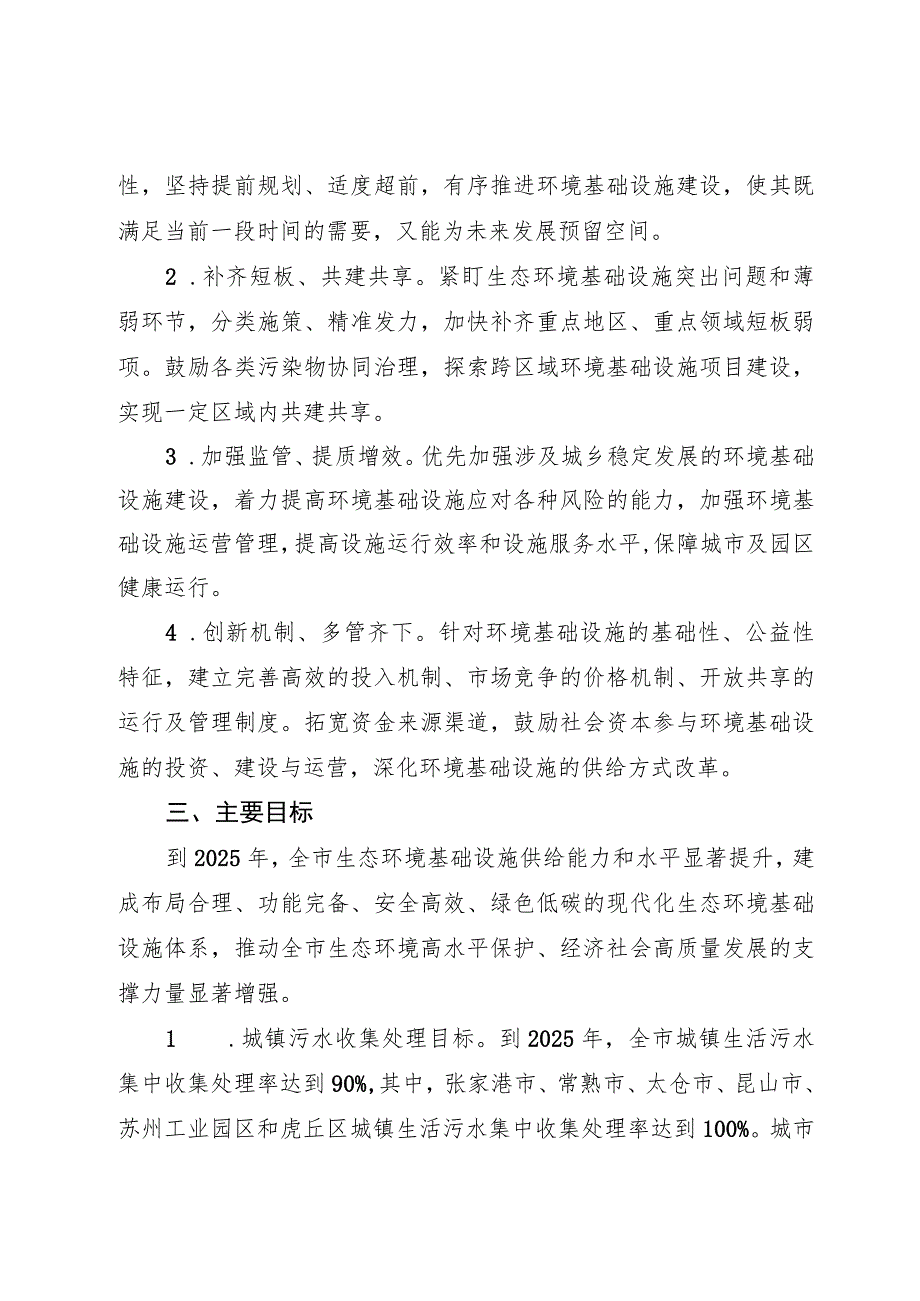 性，坚持提前规划、适度超前，有序推进环境基础设施建设，使其既
满足当前一段时间的需要，又能为未来发展预留空间。
2 .补齐短板、共建共享。紧盯生态环境基础设施突出问题和薄
弱环节，分类施策、精准发力，加快补齐重点地区、重点领域短板弱
项。鼓励各类污染物协同治理，探索跨区域环境基础设施项目建设，
实现一定区域内共建共享。
3 .加强监管、提质增效。优先加强涉及城乡稳定发展的环境基础
设施建设，着力提高环境基础设施应对各种风险的能力，加强环境基
础设施运营管理,提高设施运行效率和设施服务水平,保障城市及园区
健康运行。
4 .创新机制、多管齐下。针对环境基础设施的基础性、公益性
特征，建立完善高效的投入机制、市场竞争的价格机制、开放共享的
运行及管理制度。拓宽资金来源渠道，鼓励社会资本参与环境基础设
施的投资、建设与运营，深化环境基础设施的供给方式改革。
三、主要目标
到 2025 年，全市生态环境基础设施供给能力和水平显著提升，建
成布局合理、功能完备、安全高效、绿色低碳的现代化生态环境基础
设施体系，推动全市生态环境高水平保护、经济社会高质量发展的支
撑力量显著增强。
1 .城镇污水收集处理目标。到 2025 年，全市城镇生活污水
集中收集处理率达到 90%,其中，张家港市、常熟市、太仓市、昆山市、
苏州工业园区和虎丘区城镇生活污水集中收集处理率达到 100%。城市